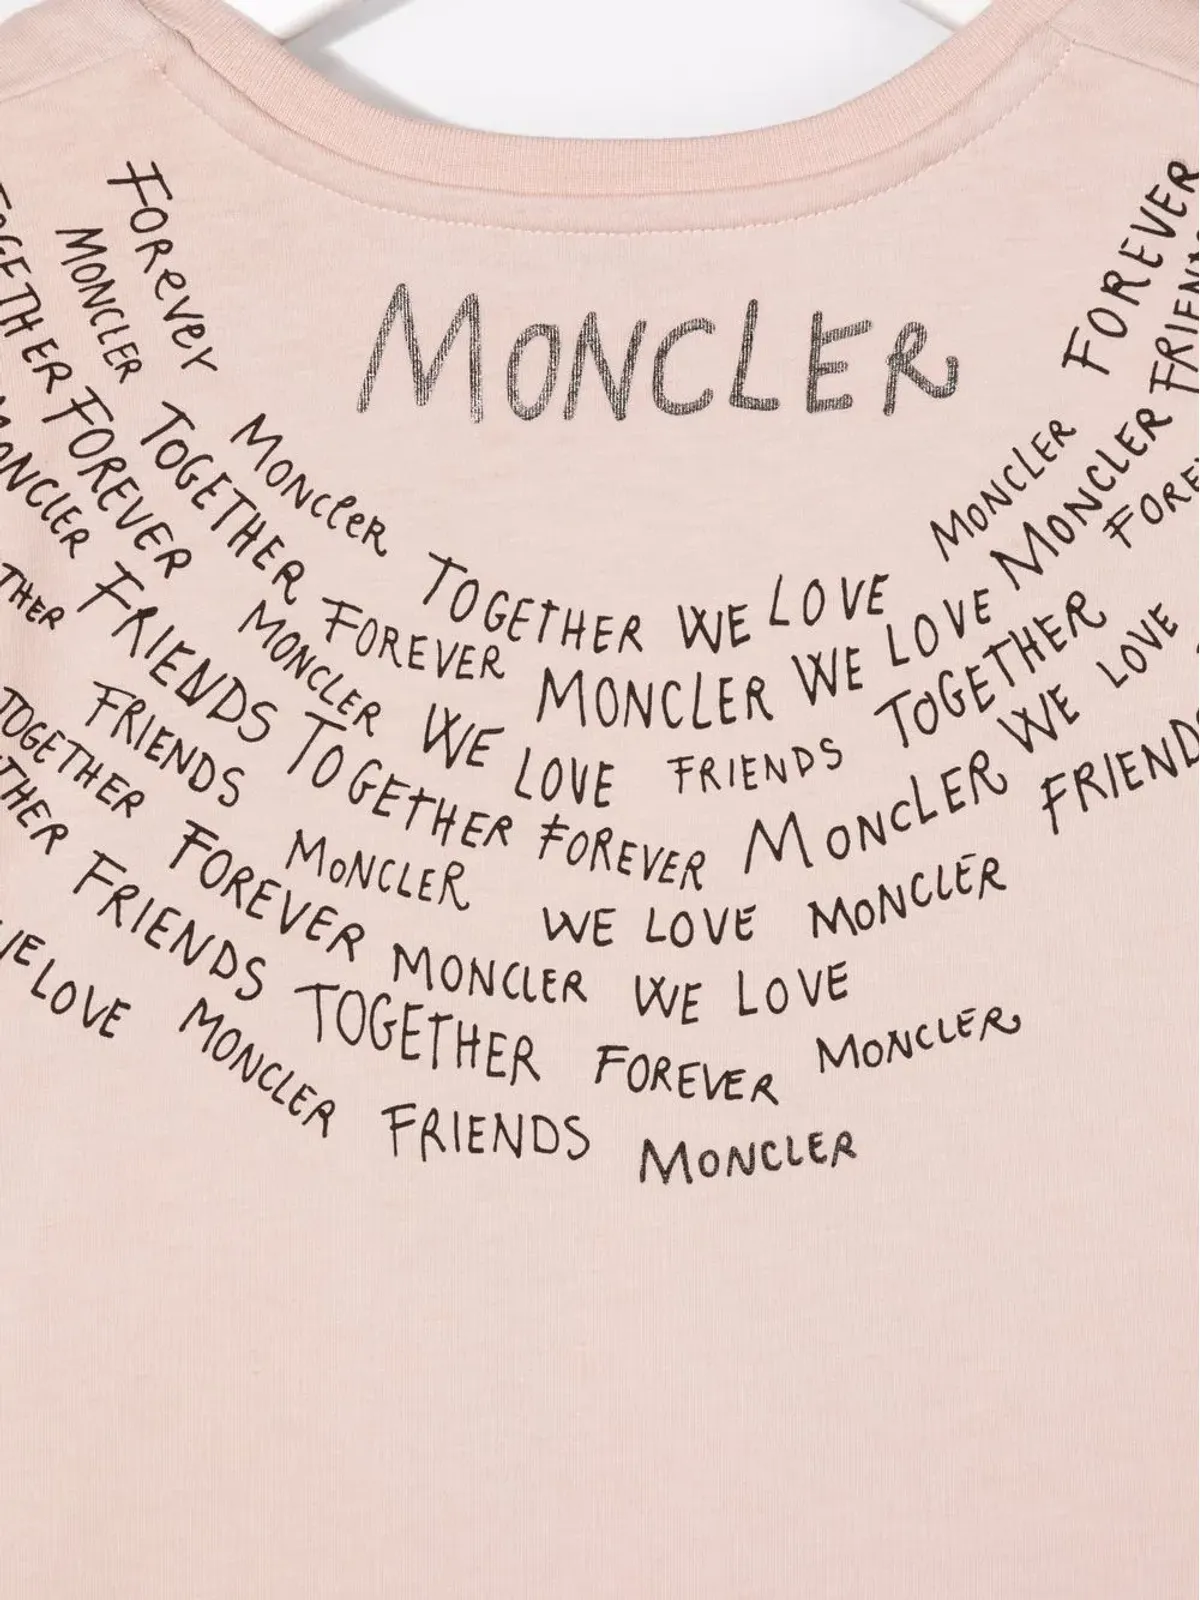 MONCLER
FOREVER MONCLER TOGETHER WE LOVE MONCLER FOREVER
MONCLER TOGETHER FOREVER MONCLER WE LOVE MONCLER
TOGETHER FOREVER MONCLER WE LOVE FRIENDS TOGETHER
MONCLER FRIENDS TOGETHER FOREVER MONCLER WE LOVE
FRIENDS MONCLER WE LOVE MONCLER FRIENDS
TOGETHER FOREVER MONCLER WE LOVE
FRIENDS TOGETHER FOREVER MONCLER
WE LOVE MONCLER FRIENDS MONCLER